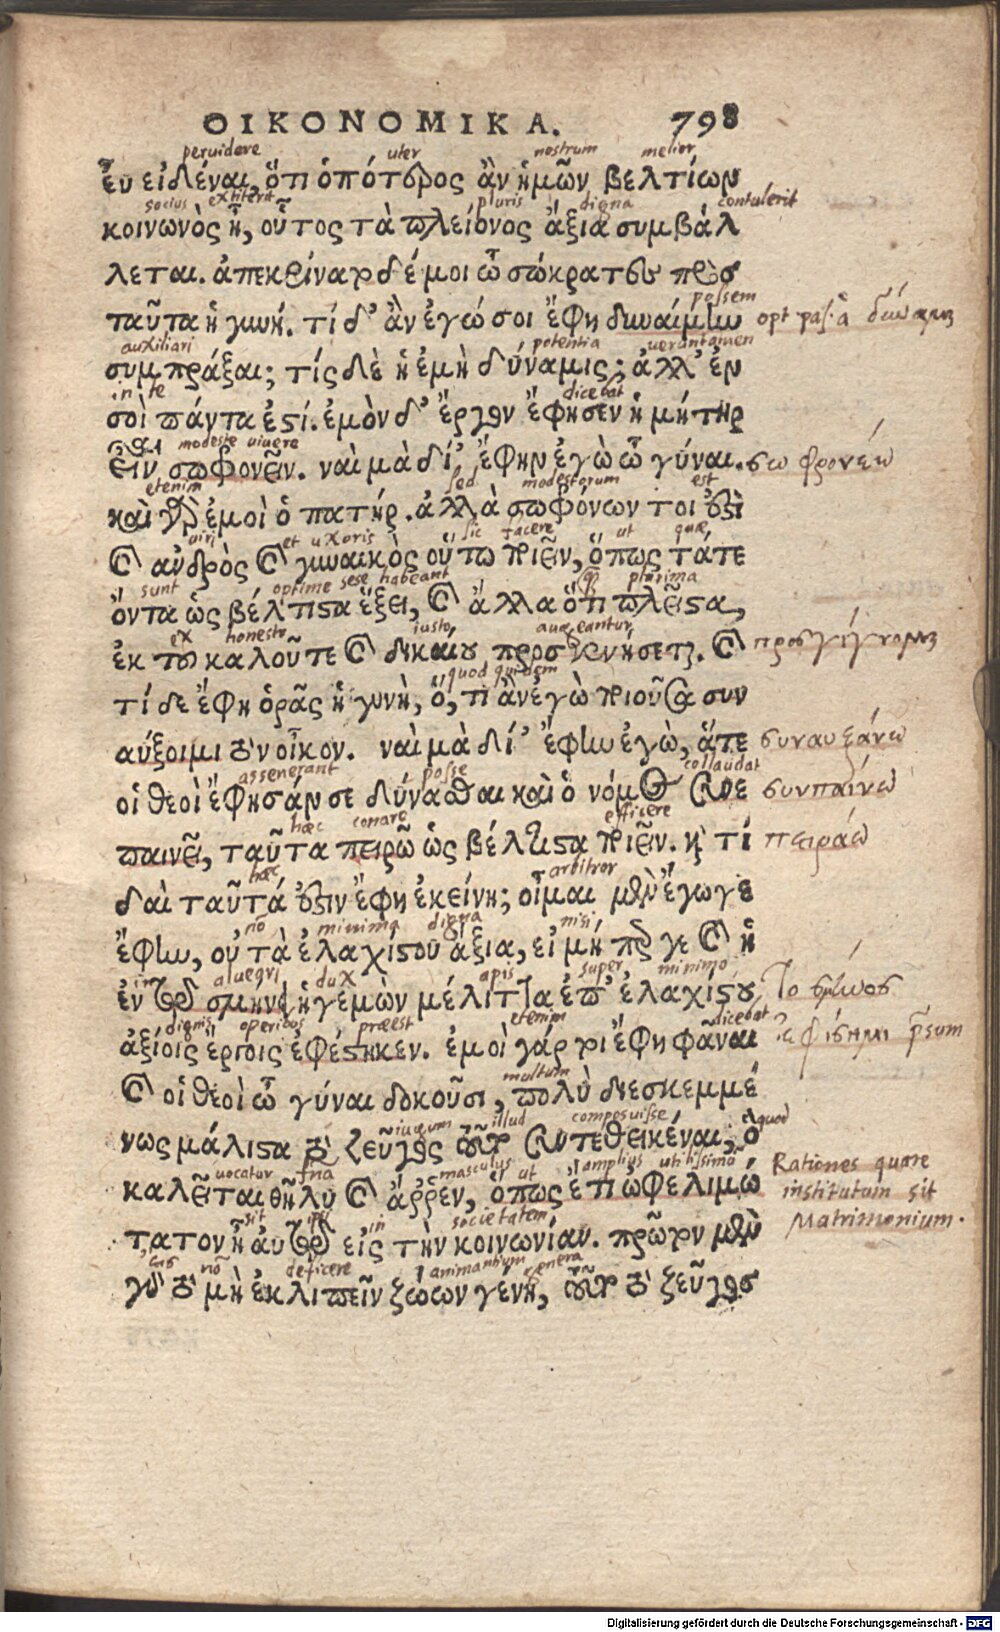 ΟΙΚΟΝΟΜΙΚΑ. 798
peruidere uter nostrum melior
εὖ εἰδέναι, ὅτι ὁπότερος ἂν ἡμῶν βελτίων
socius extiterit pluris digna contulerit
κοινωνὸς ᾖ, οὗτος τὰ πλείονος ἄξια συμβάλ
λεται. ἀπεκρίνατο δέ μοι ὦ σώκρατες πρὸσ
possem
ταῦτα ἡ γυνή. τί δ' ἂν ἐγώ σοι ἔφη δυναίμην opt pas. à δύναμαι
auxiliari potentia veruntamen
συμπράξαι; τίς δὲ ἡ ἐμὴ δύναμις; ἀλλ' ἐν
in te dicebat
σοὶ πάντα ἐστί. ἐμὸν δ' ἔργον ἔφησεν ἡ μήτηρ
modeste uiuere
εἶναι σωφρονεῖν. ναὶ μὰ δί' ἔφην ἐγὼ ὦ γύναι. σωφρονέω
etenim sed modestorum est
καὶ γὰρ ἐμοὶ ὁ πατήρ. ἀλλὰ σωφρόνων τοι ἐστὶ
uiri et uxoris sic facere ut quae
καὶ ἀνδρὸς καὶ γυναικὸς οὕτω ποιεῖν, ὅπως τά τε
sunt optime sese habeant plurima
ὄντα ὡς βέλτιστα ἕξει, καὶ ἄλλα ὅτι πλεῖστα,
ex honesto iusto augeantur
ἐκ τοῦ καλοῦ τε καὶ δικαίου προσγενήσεται. καὶ προσγίγνομαι
quod quidem
τί δε ἔφη ὁρᾷς ἡ γυνὴ, ὅ, τι ἂν ἐγὼ ποιοῦσα συν
αύξοιμι τὸν οἶκον. ναὶ μὰ δί' ἔφην ἐγὼ, ἅτε συναυξάνω
assenerant posse collaudat
οἱ θεοὶ ἔφησάν σε δύνασθαι καὶ ὁ νόμος συνε συνπαίνω
haec conare efficere
παινεῖ, ταῦτα πειρῶ ὡς βέλτιστα ποιεῖν. καὶ τί πειράω
haec arbitror
δαὶ ταῦτά ἐστιν ἔφη ἐκείνη; οἶμαι μὲν ἔγωγε
nō minima digna nisi
ἔφην, οὐ τὰ ἐλαχίστου ἄξια, εἰ μή πέρ γε καὶ ἡ
in alueari dux apis super minimo
ἐν τῷ σμήνει ἡγεμὼν μέλιττα ἐπ' ἐλαχίστου τὸ σμῆνος
dignis operibus praeest etenim dicebat
ἀξίοις ἔργοις ἐφέστηκεν. ἐμοὶ γάρ τοι ἔφη φᾶναι ἐφίστημι p̄sum
multum
καὶ οἱ θεοὶ ὦ γύναι δοκοῦσι, πολὺ διεσκεμμέ
iugum illud composuisse quod
νως μάλιστα τὸ ζεῦγος τοῦτο συντεθεικέναι, ὃ
uocatur masculus ut amplius utilissimū
καλεῖται θῆλυ καὶ ἄρρεν, ὅπως ἔτι ὠφελιμώ
Rationes quare
institutum sit
Matrimonium.
sit ipsi in societatem
τατον ᾖ αὐτῷ εἰς τὴν κοινωνίαν. πρῶτον μὲν
nō deficere animantium genera
γὰρ τὸ μὴ ἐκλιπεῖν ζώων γένη, τοῦτο τὸ ζεῦγοσ
Digitalisierung gefördert durch die Deutsche Forschungsgemeinschaft - DFG